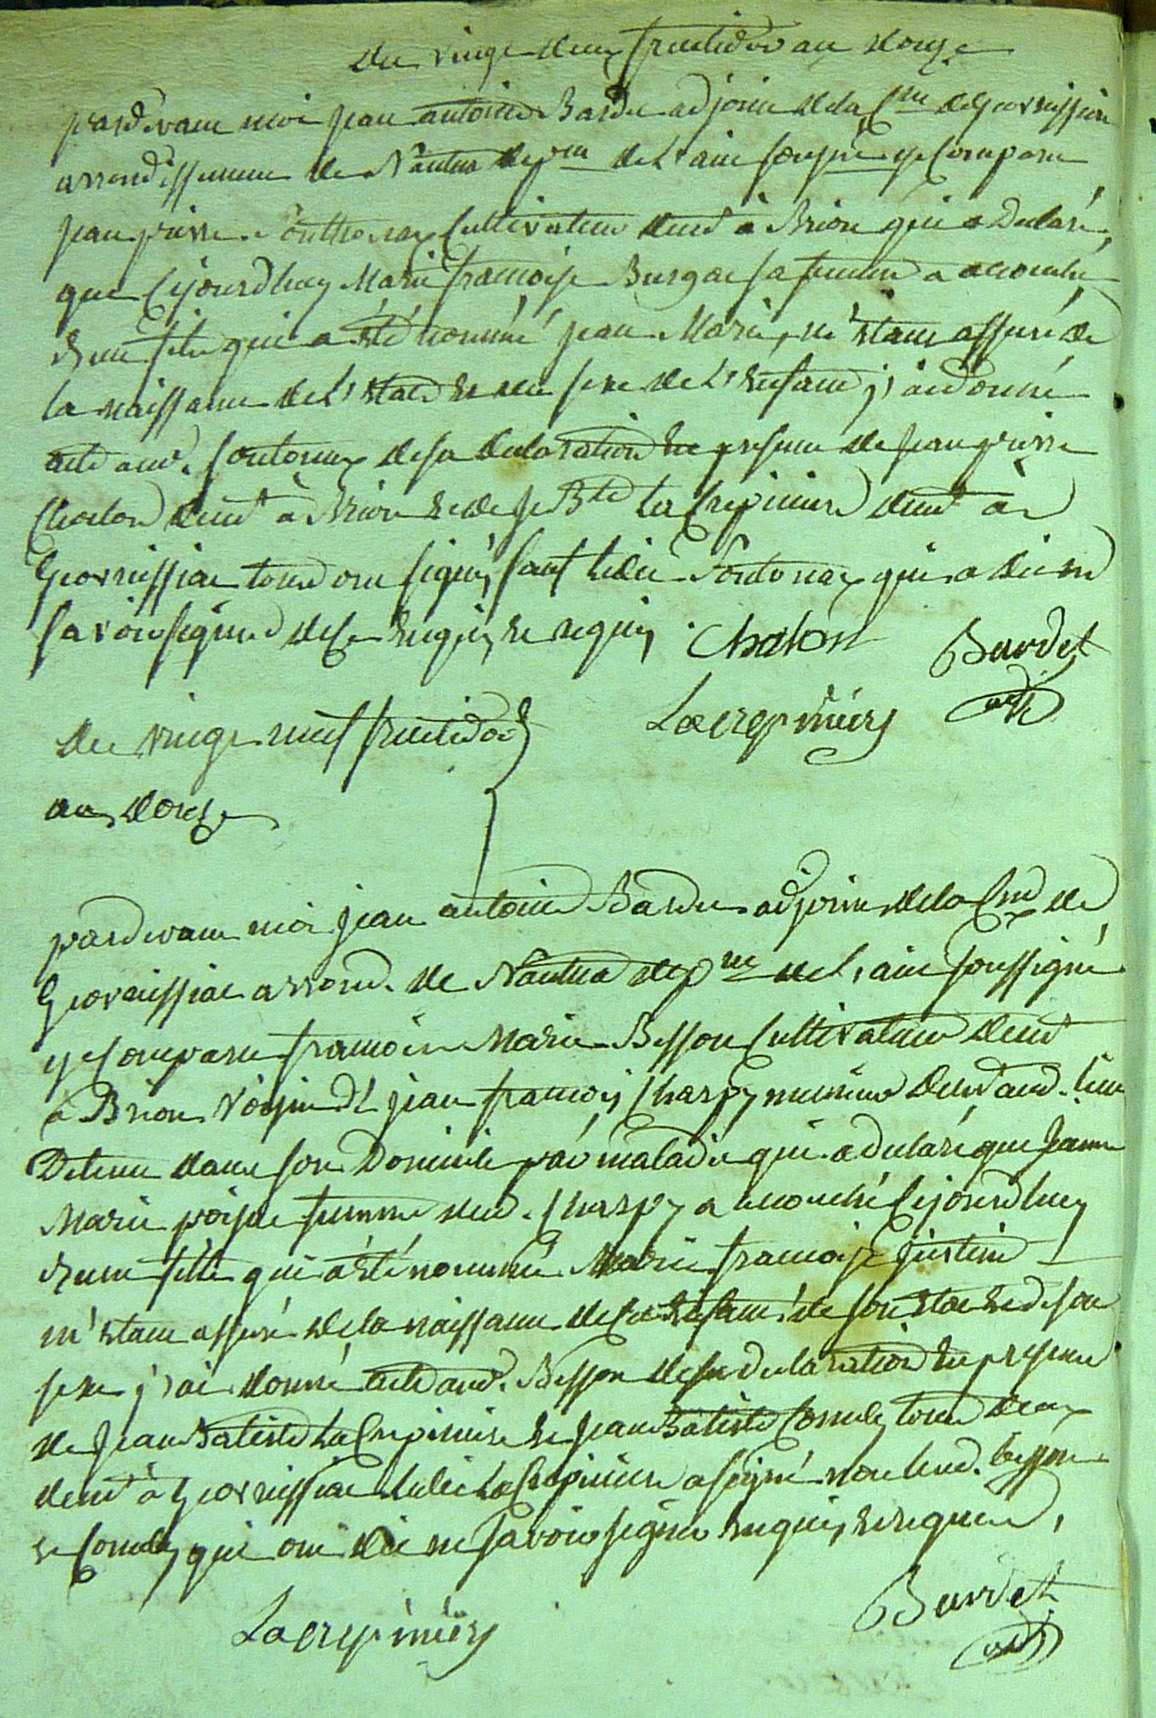 du vingt deux fructidor an douze
pardevant moi jean antoine Bardet adjoint de la Cne de Geovreissiat
arrondissement de Nantua depm de l'ain soussigné est Comparu
jean pierre Sonthonax Cultivateur demt à Brion qui a Declaré
que Cejourdhuy Marie françoise Burgat sa femme a accouché
d'un fils qui a été nommé jean Marie, m'étant assuré de
la naissance de l'état et du sexe de l'Enfant j'ai donné
acte aud. Sontonax de sa declaration En presence de jean pierre
Chalon demt à Brion et de je Bte La Crepiniere demt à
Geovreissiat tous ont signés sauf ledit Sontonax qui a dit ne
savoir signer de Ce Enquis et requis Chalon Burdet
Lacrepiniers
du vingt neuf fructidor
an douze
pardevant moi jean antoine Bardet adjoint de la Cne de
Geovreissiat arrond. de Nantua depm de l'ain soussigné
est Comparu francois Marie Besson Cultivateur demt
à Brion Voisin de jean françois Charpy demt aud. lieu
Detenu dans son Domicile par maladie qui a declaré que jeanne
Marie femme dud. Charpy a accouché Cejourdhuy
d'une fille qui a été nommé Marie françoise justine
m'étant assuré de la naissance de Cet Enfant de son état et de son
sexe j'ai donné acte aud. Besson de sa declaration En presence
de jean Batiste La Crepiniere et jean Batiste Cornuly tous deux
demt à Geovreissiat ledit La Crepiniere a signé non led. besson
et Cornuly qui ont dit ne savoir signer Enquis et requis,
Lacrepiniers Burdet